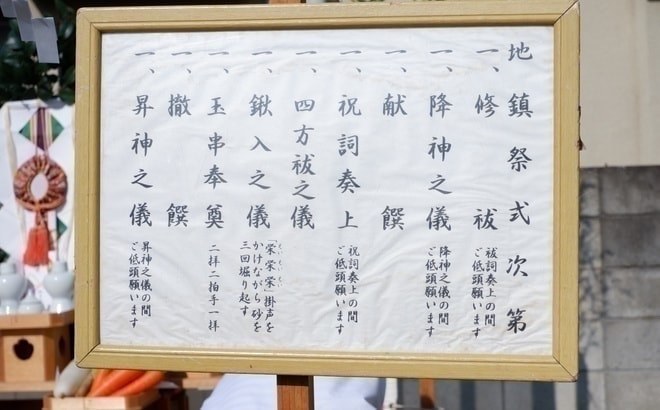 地鎮祭式次第
一、修祓
祓詞奏上の間
ご低頭願います
一、降神之儀
降神之儀の間
ご低頭願います
一、献饌
一、祝詞奏上
祝詞奏上の間
ご低頭願います
一、四方祓之儀
一、鍬入之儀
「栄栄栄」掛声を
かけながら砂を
三回堀り起す
一、玉串奉奠
二拝二拍手一拝
一、撤饌
一、昇神之儀
昇神之儀の間
ご低頭願います